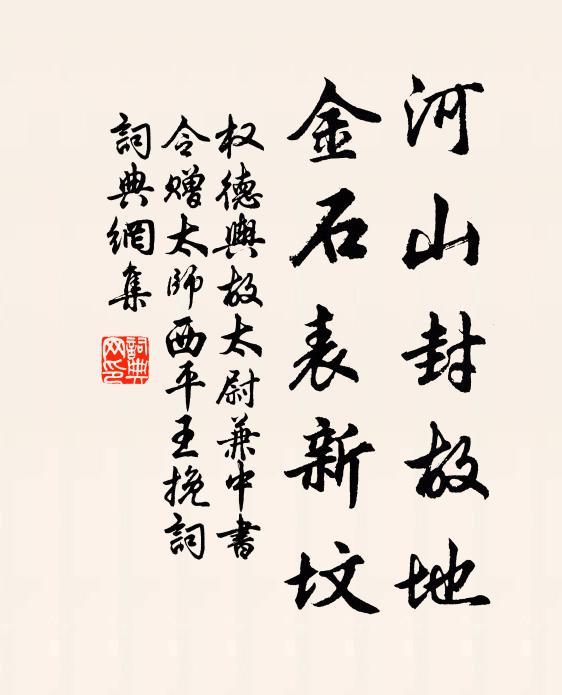 河山封故地
金石表新坟
权德舆故太尉兼中書
令赠太师西平王挽詞
詞典網集
詞典网印